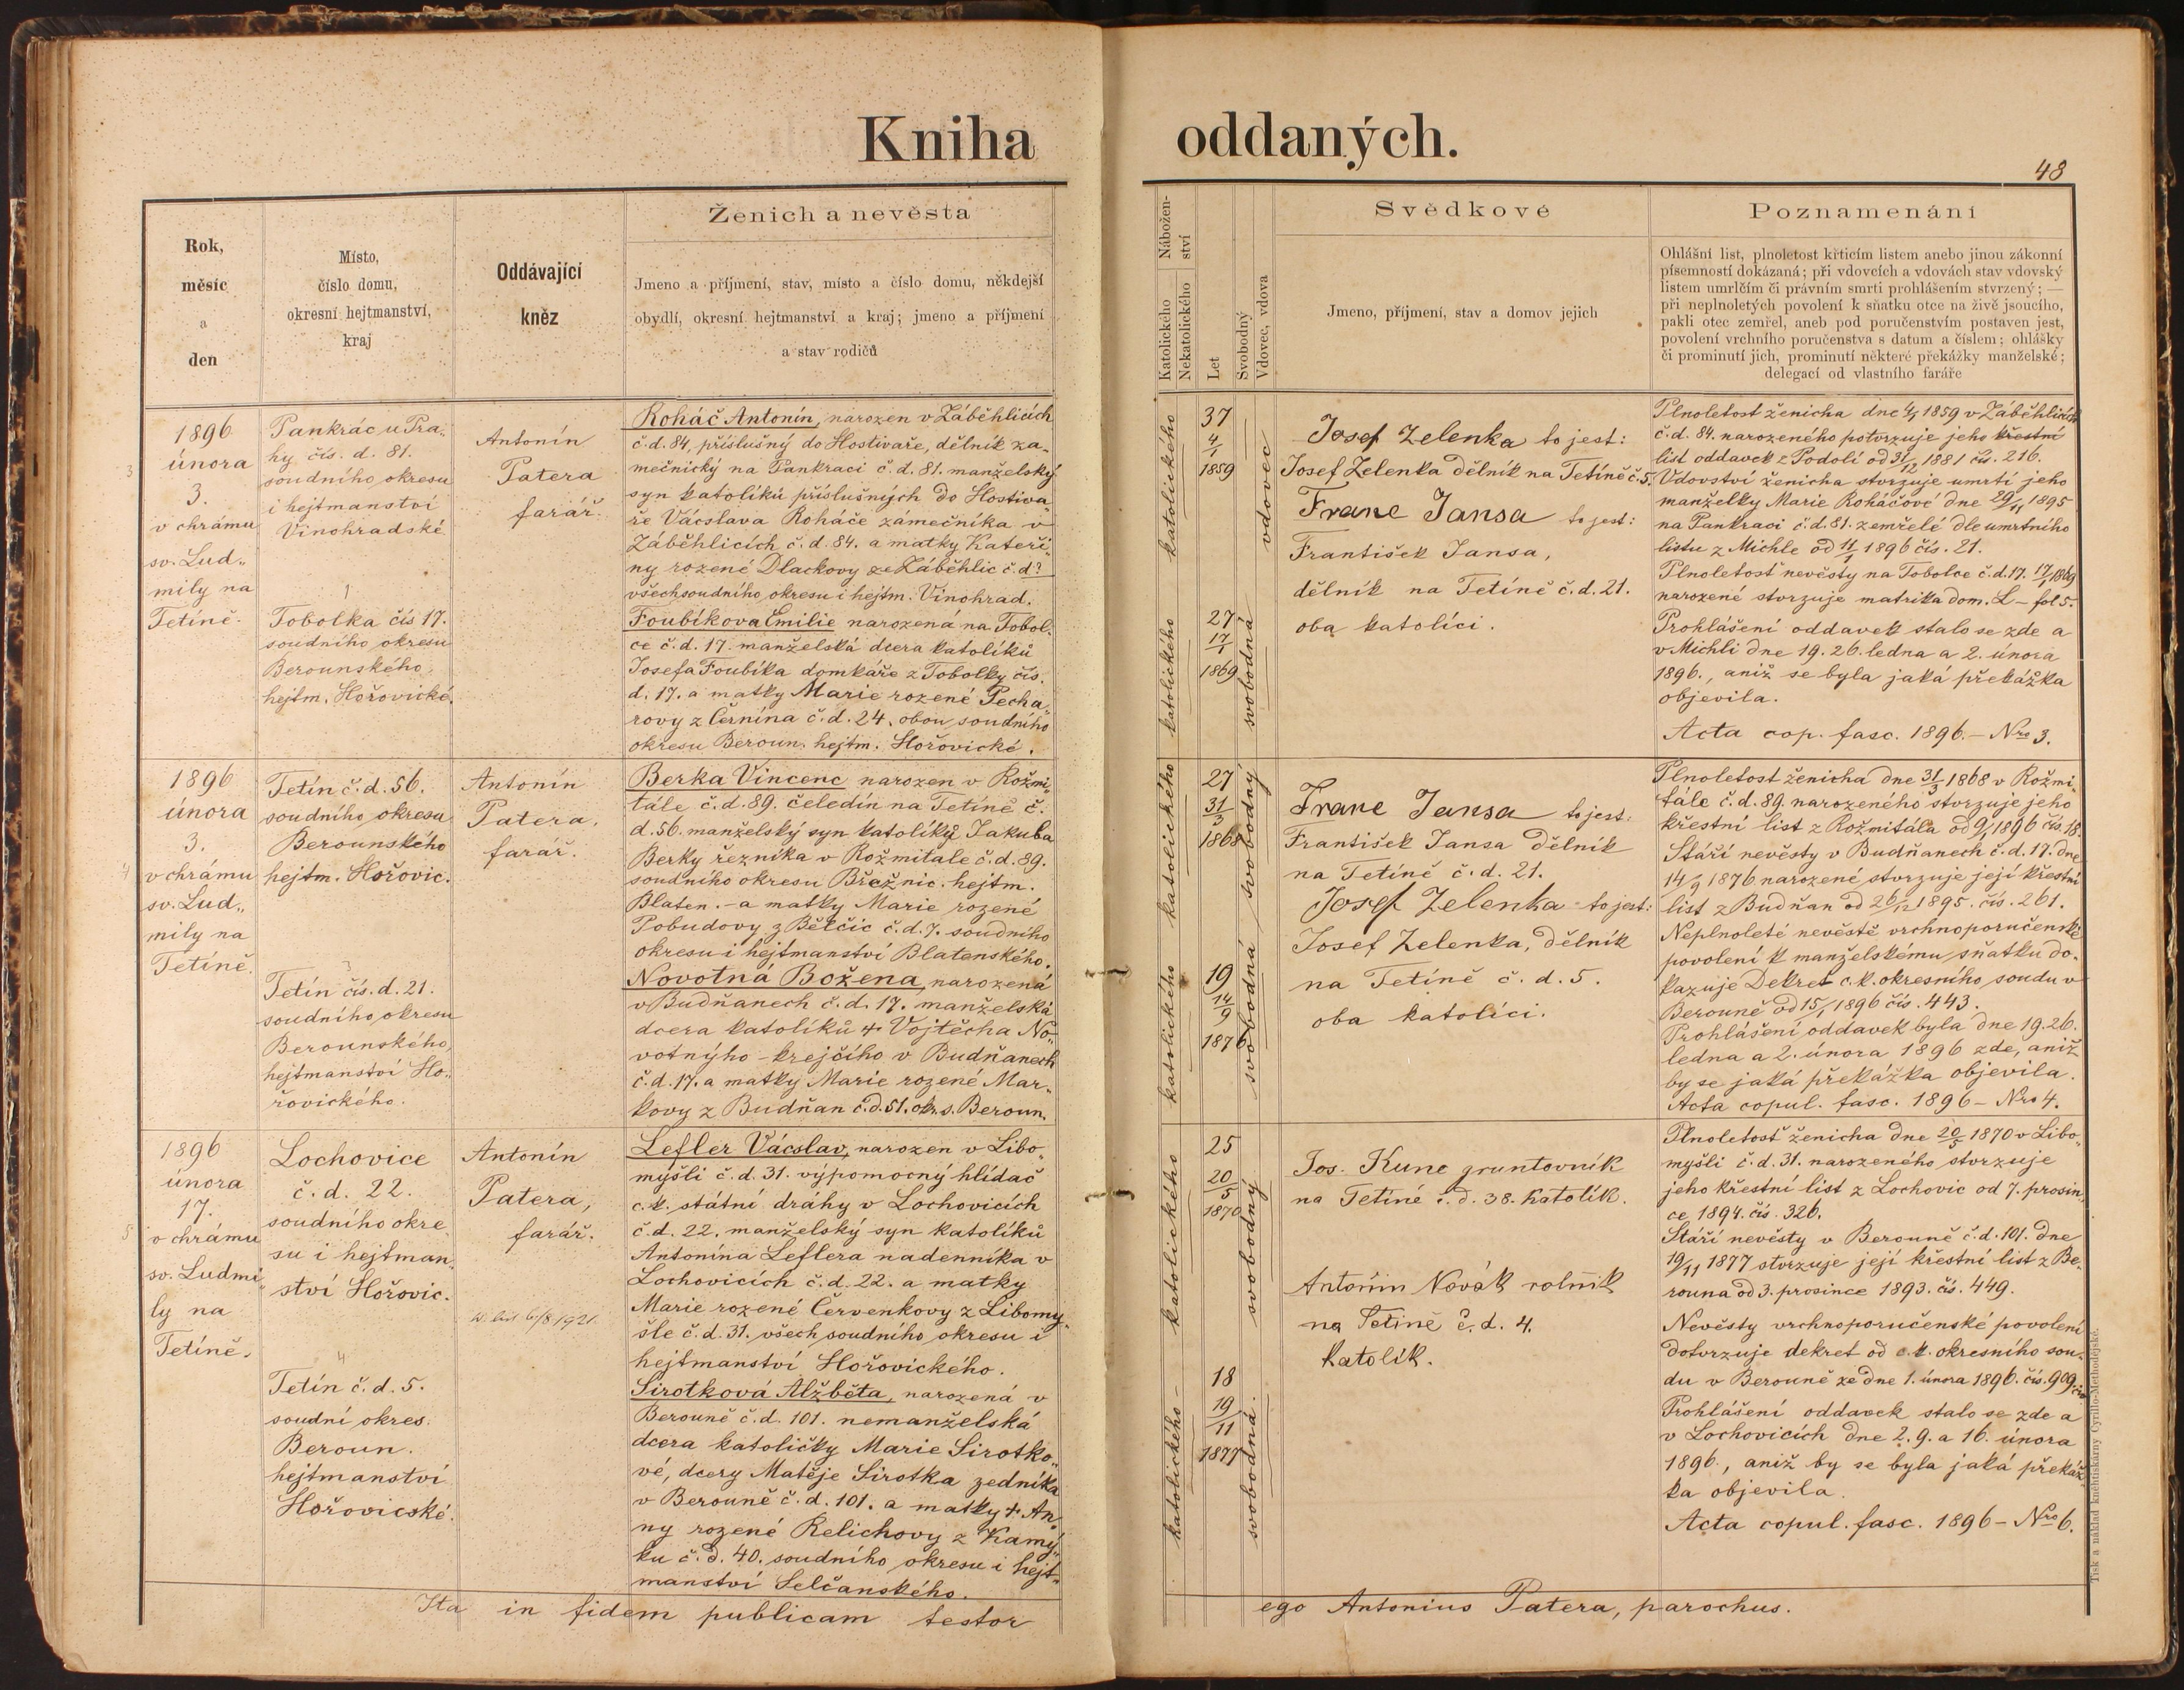 Kniha oddaných.
48
Rok,
měsíc
a
den
Místo,
číslo domu,
okresní hejtmanství,
kraj
Oddávající
kněz
Ženich a nevěsta
Jmeno a příjmení, stav, místo a číslo domu, někdejší
obydlí, okresní hejtmanství a kraj; jmeno a příjmení
a stav rodičů
Nábožen-
ství
Katolického
Nekatolického
Let
Svobodný
Vdovec, vdova
Svědkové
Jmeno, příjmení, stav a domov jejich
Poznamenání
Ohlášní list, plnoletost křticím listem anebo jinou zákonní
písemností dokázaná; při vdovcích a vdovách stav vdovský
listem umrlčím či právním smrti prohlášením stvrzený; —
při neplnoletých povolení k sňatku otce na živě jsoucího,
pakli otec zemřel, aneb pod poručenstvím postaven jest,
povolení vrchního poručenstva s datum a číslem; ohlášky
či prominutí jich, prominutí některé překážky manželské;
delegací od vlastního faráře
3
1896
února
3.
v chrámu
sv. Lud„
mily na
Tetíně.
Pankrác u Pra„
hy čís. d. 81.
soudního okresu
i hejtmanství
Vinohradské
1
Tobolka čís 17.
soudního okresu
Berounského,
hejtm. Hořovické.
Antonín
Patera
farář.
Roháč Antonín, narozen v Záběhlicích
č.d. 84, příslušný do Hostivaře, dělník zá-
mečnický na Pankraci č.d. 81. manželský
syn katolíků příslušných do Hostiva„
ře Vácslava Roháče zámečníka v
Záběhlicích č.d. 84. a matky Kateři„
ny rozené Dlackovy ze Záběhlic č.d?
všech soudního okresu i hejtm. Vinohrad.
Foubíkova Emilie narozená na Tobol„
ce č.d. 17. manželská dcera katolíků
Josefa Foubíka domkáře z Tobolky čís.
d. 17. a matky Marie rozené Pecha„
rovy z Černína č.d. 24. obou soudního
okresu Beroun. hejtm. Hořovické.
katolického
37
4/1
1859
vdovec
katolického
27
17/1
1869
svobodná
Josef Zelenka to jest:
Josef Zelenka dělník na Tetíně č. 5.
Franc Jansa to jest:
František Jansa,
dělník na Tetíně č.d. 21.
oba katolíci.
Plnoletost ženicha dne 4/1 1859 v Záběhlicích
č.d. 84. narozeného potvrzuje jeho křestní
list oddavek z Podolí od 31/12 1881 čís. 216.
Vdovství ženicha stvrzuje umrtí jeho
manželky Marie Roháčové dne 29/11 1895
na Pankraci č.d. 81. zemřelé dle umrtního
listu z Michle od 11/1 1896 čís. 21.
Plnoletosť nevěsty na Tobolce č.d. 17. 17/1 1869
narozené stvrzuje matrika dom. L – fol 5.
Prohlášení oddavek stalo se zde a
v Michli dne 19. 26. ledna a 2. února
1896., aniž se byla jaká překážka
objevila.
Acta cop. fasc. 1896. – Nro 3.
4
1896
února
3.
v chrámu
sv. Lud„
mily na
Tetíně.
Tetín č.d. 56.
soudního okresu
Berounského
hejtm. Hořovic.
Tetín čís. d. 21.
soudního okresu
Berounského,
hejtmanství Ho„
řovického.
Antonín
Patera,
farář.
Berka Vincenc narozen v Rožmi„
tále č.d. 89. čeledín na Tetíně č.
d. 56. manželský syn katolíků Jakuba
Berky řezníka v Rožmitale č.d. 89.
soudního okresu Březnic. hejtm.
Blaten. – a matky Marie rozené
Pobudovy z Bělčic č.d. 7. soudního
okresu i hejtmanství Blatenského.
Novotná Božena, narozená
v Budňanech č.d. 17. manželská
dcera katolíků + Vojtěcha No„
votnýho – krejčího v Budňanech
č.d. 17. a matky Marie rozené Mar„
kovy z Budňan č.d. 51. okr. s. Beroun.
katolického
27
31/3
1868
svobodný
katolického
19
14/9
1876
svobodná
Franc Jansa to jest:
František Jansa dělník
na Tetíně č.d. 21.
Josef Zelenka to jest:
Josef Zelenka, dělník
na Tetíně č.d. 5.
oba katolíci.
Plnoletost ženicha dne 31/3 1868 v Rožmi„
tále č.d. 89. narozeného stvrzuje jeho
křestní list z Rožmitála od 9/1 1896 čís. 18.
Stáří nevěsty v Budňanech č.d. 17. dne
14/9 1876 narozené stvrzuje její křestní
list z Budňan od 26/12 1895. čís. 261.
Neplnoleté nevěstě vrchnoporučenské
povolení k manželskému sňatku do„
kazuje Dekret c.k. okresního soudu v
Berouně od 15/1 1896 čís. 443.
Prohlášení oddavek byla dne 19. 26.
ledna a 2. února 1896 zde, aniž
by se jaká překážka objevila.
Acta copul. fasc. 1896 – Nro 4.
5
1896
února
17.
v chrámu
sv. Ludmi„
ly na
Tetíně.
Lochovice
č.d. 22.
soudního okre
su i hejtman„
ství Hořovic.
4
Tetín č.d. 5.
soudní okres.
Beroun.
hejtmanství
Hořovicské.
Antonín
Patera,
farář.
6/8 1921
Lefler Vácslav, narozen v Libo„
myšli č.d. 31. výpomocný hlídač
c.k. státní dráhy v Lochovicích
č.d. 22. manželský syn katolíků
Antonína Leflera nadenníka v
Lochovicích č.d. 22. a matky
Marie rozené Červenkovy z Libomy„
šle č.d. 31. všech soudního okresu i
hejtmanství Hořovického.
Sirotková Alžběta, narozená v
Berouně č.d. 101. nemanželská
dcera katoličky Marie Sirotko„
vé, dcery Matěje Sirotka zedníka
v Berouně č.d. 101. a matky + An„
ny rozené Relichovy z Kamý„
ku č.d. 40. soudního okresu i hejt„
manství Selčanského.
katolického
25
20/5
1870
svobodný
katolického
18
19/11
1877
svobodná.
Jos. Kunc gruntovník
na Tetíně č.d. 38. katolík.
Antonín Novák rolník
na Tetíně č.d. 4.
katolík.
Plnoletosť ženicha dne 20/5 1870 v Libo„
myšli č.d. 31. narozeného stvrzuje
jeho křestní list z Lochovic od 7. prosin„
ce 1894. čís. 326.
Stáří nevěsty v Berouně č.d. 101. dne
19/11 1877 stvrzuje její křestní list z Be„
rouna od 3. prosince 1893. čís. 449.
Nevěsty vrchnoporučenské povolení
dotvrzuje dekret od c.k. okresního sou„
du v Berouně ze dne 1. února 1896. čís. 909
Prohlášení oddavek stalo se zde a
v Lochovicích dne 2. 9. a 16. února
1896., aniž by se byla jaká překáž„
ka objevila.
Acta copul. fasc. 1896 – Nro 6.
Ita in fidem publicam testor ego Antonius Patera, parochus.
Tisk a náklad knihtiskárny Cyrillo-Methodějské.